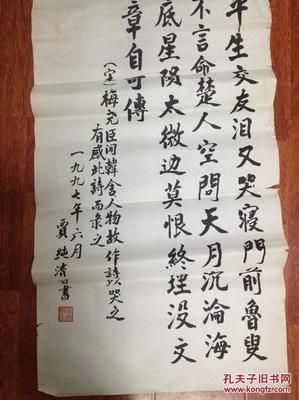 平生交友泪又哭寝門前魯叟
不言命楚人空問天月沉淪海
底星隕太微边莫恨終埋没文
章自可傳
（宋）梅尭臣闻韓舍人物故作詩以哭之
有感此詩而录之
一九九七年六月
賈純清書
孔夫子旧书网